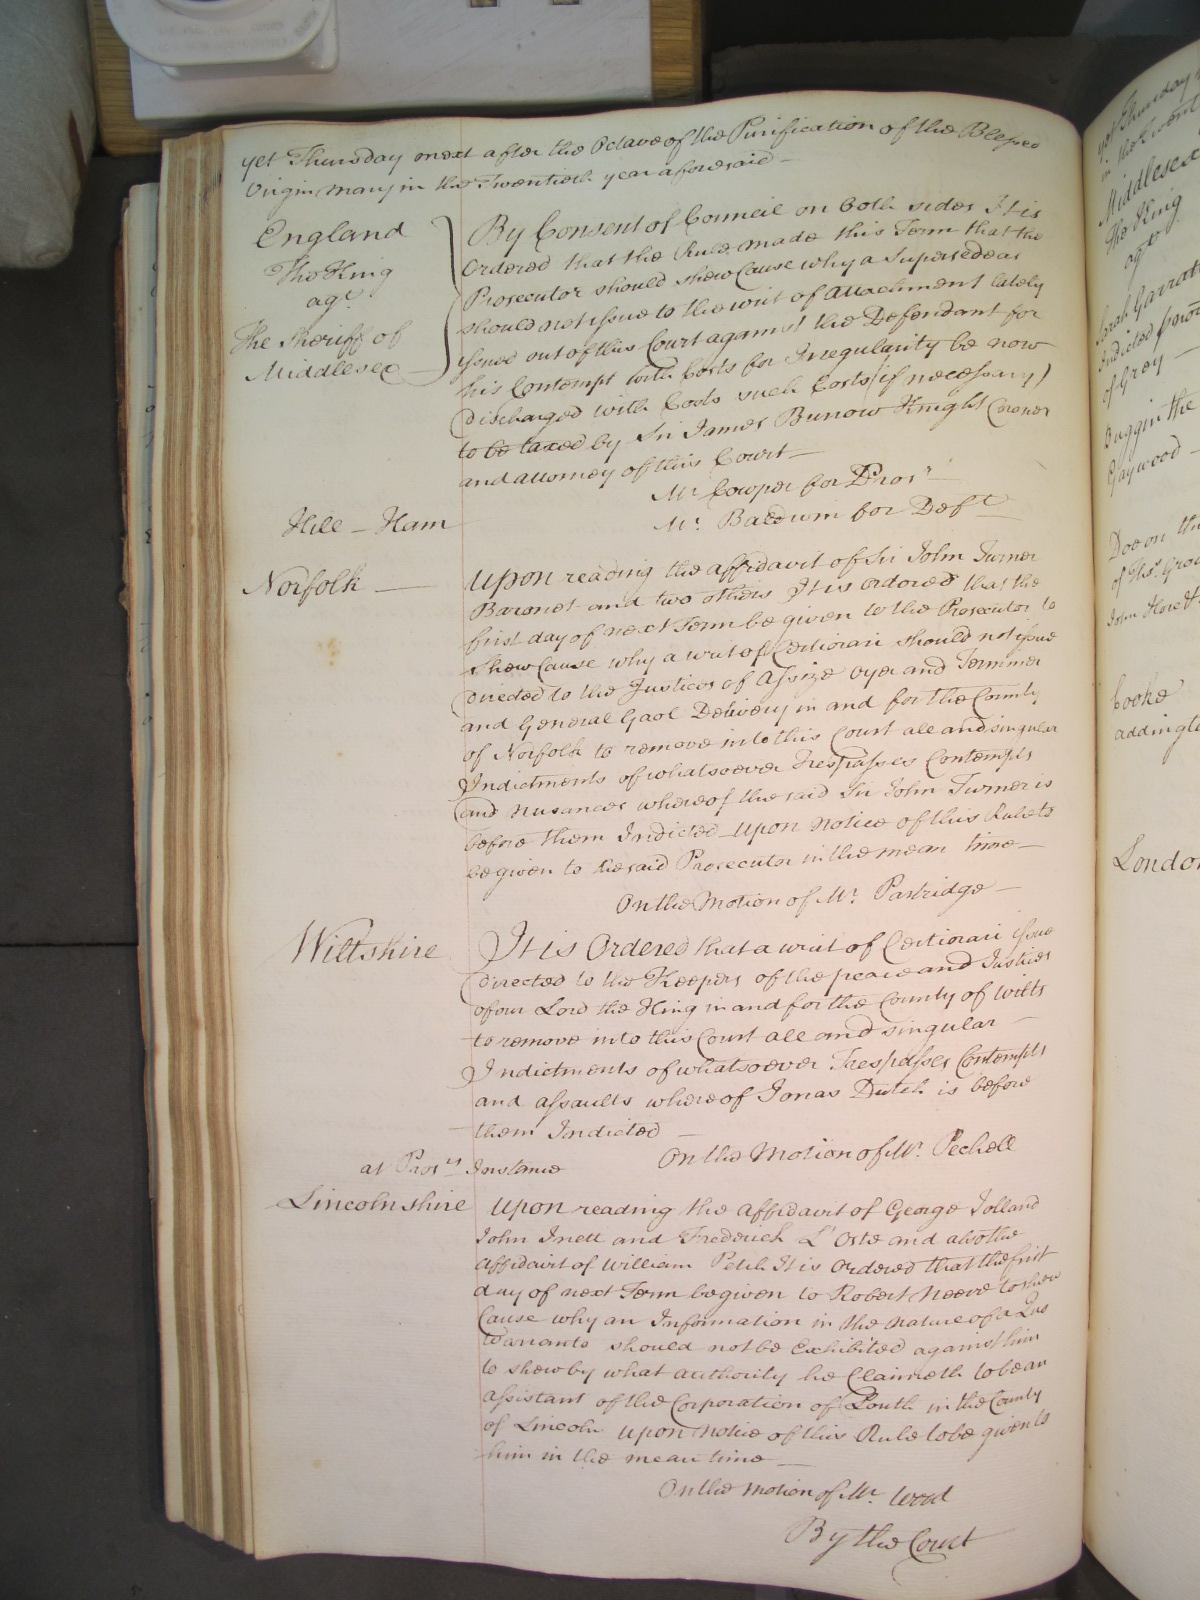 yet Thursday next after the Octave of the Purification of the Blessed
Virgin Mary in the Twentieth year aforesaid —
England
The King
agt.
The Sheriff of
Middlesex
By Consent of Council on both sides It is
Ordered that the Rule made this Term that the
Prosecutor should shew Cause why a Supersedeas
should not issue to the writ of Attachment lately
issued out of this Court against the Defendant for
his Contempt with Costs for Irregularity be now
discharged with Costs such Costs (if necessary)
to be taxed by Sir James Burrow Knight Coroner
and attorney of this Court —
Mr. Cowper for Prosr.
Mr. Baldwin for Deft.
Hill — Ham
Norfolk —
Upon reading the affidavit of Sir John Turner
Baronet and two others It is Ordered that the
first day of next Term be given to the Prosecutor to
shew Cause why a writ of Certiorari should not issue
directed to the Justices of Assize Oyer and Terminer
and General Gaol Delivery in and for the County
of Norfolk to remove into this Court all and singular
Indictments of whatsoever Trespasses Contempts
and Nusances whereof the said Sir John Turner is
before them Indicted Upon Notice of this Rule to
be given to the said Prosecutor in the mean time —
On the Motion of Mr. Partridge —
Wiltshire
It is Ordered that a writ of Certiorari issue
directed to the Keepers of the peace and Justices
of our Lord the King in and for the County of Wilts
to remove into this Court all and singular —
Indictments of whatsoever Trespasses Contempts
and assaults whereof Jonas Dutch is before
them Indicted —
On the Motion of Mr. Pechell
at Prosrs. Instance
Lincolnshire
Upon reading the affidavit of George Jolland
John Inett and Frederick L'Oste and also the
affidavit of William Petch It is Ordered that the first
day of next Term be given to Robert Neeve to shew
Cause why an Information in the nature of a Quo
Warranto should not be Exhibited against him
to shew by what authority he Claimeth to be an
assistant of the Corporation of Louth in the County
of Lincoln upon notice of this Rule to be given to
him in the mean time —
On the motion of Mr. Wood
By the Court
yet Thursday
in the Twent
Middlesex
The King
agt.
Sarah Garratt
Indicted
of Gray —
Buggin the
Gaywood —
Doe on the
of Thos.
John
Cooke
London